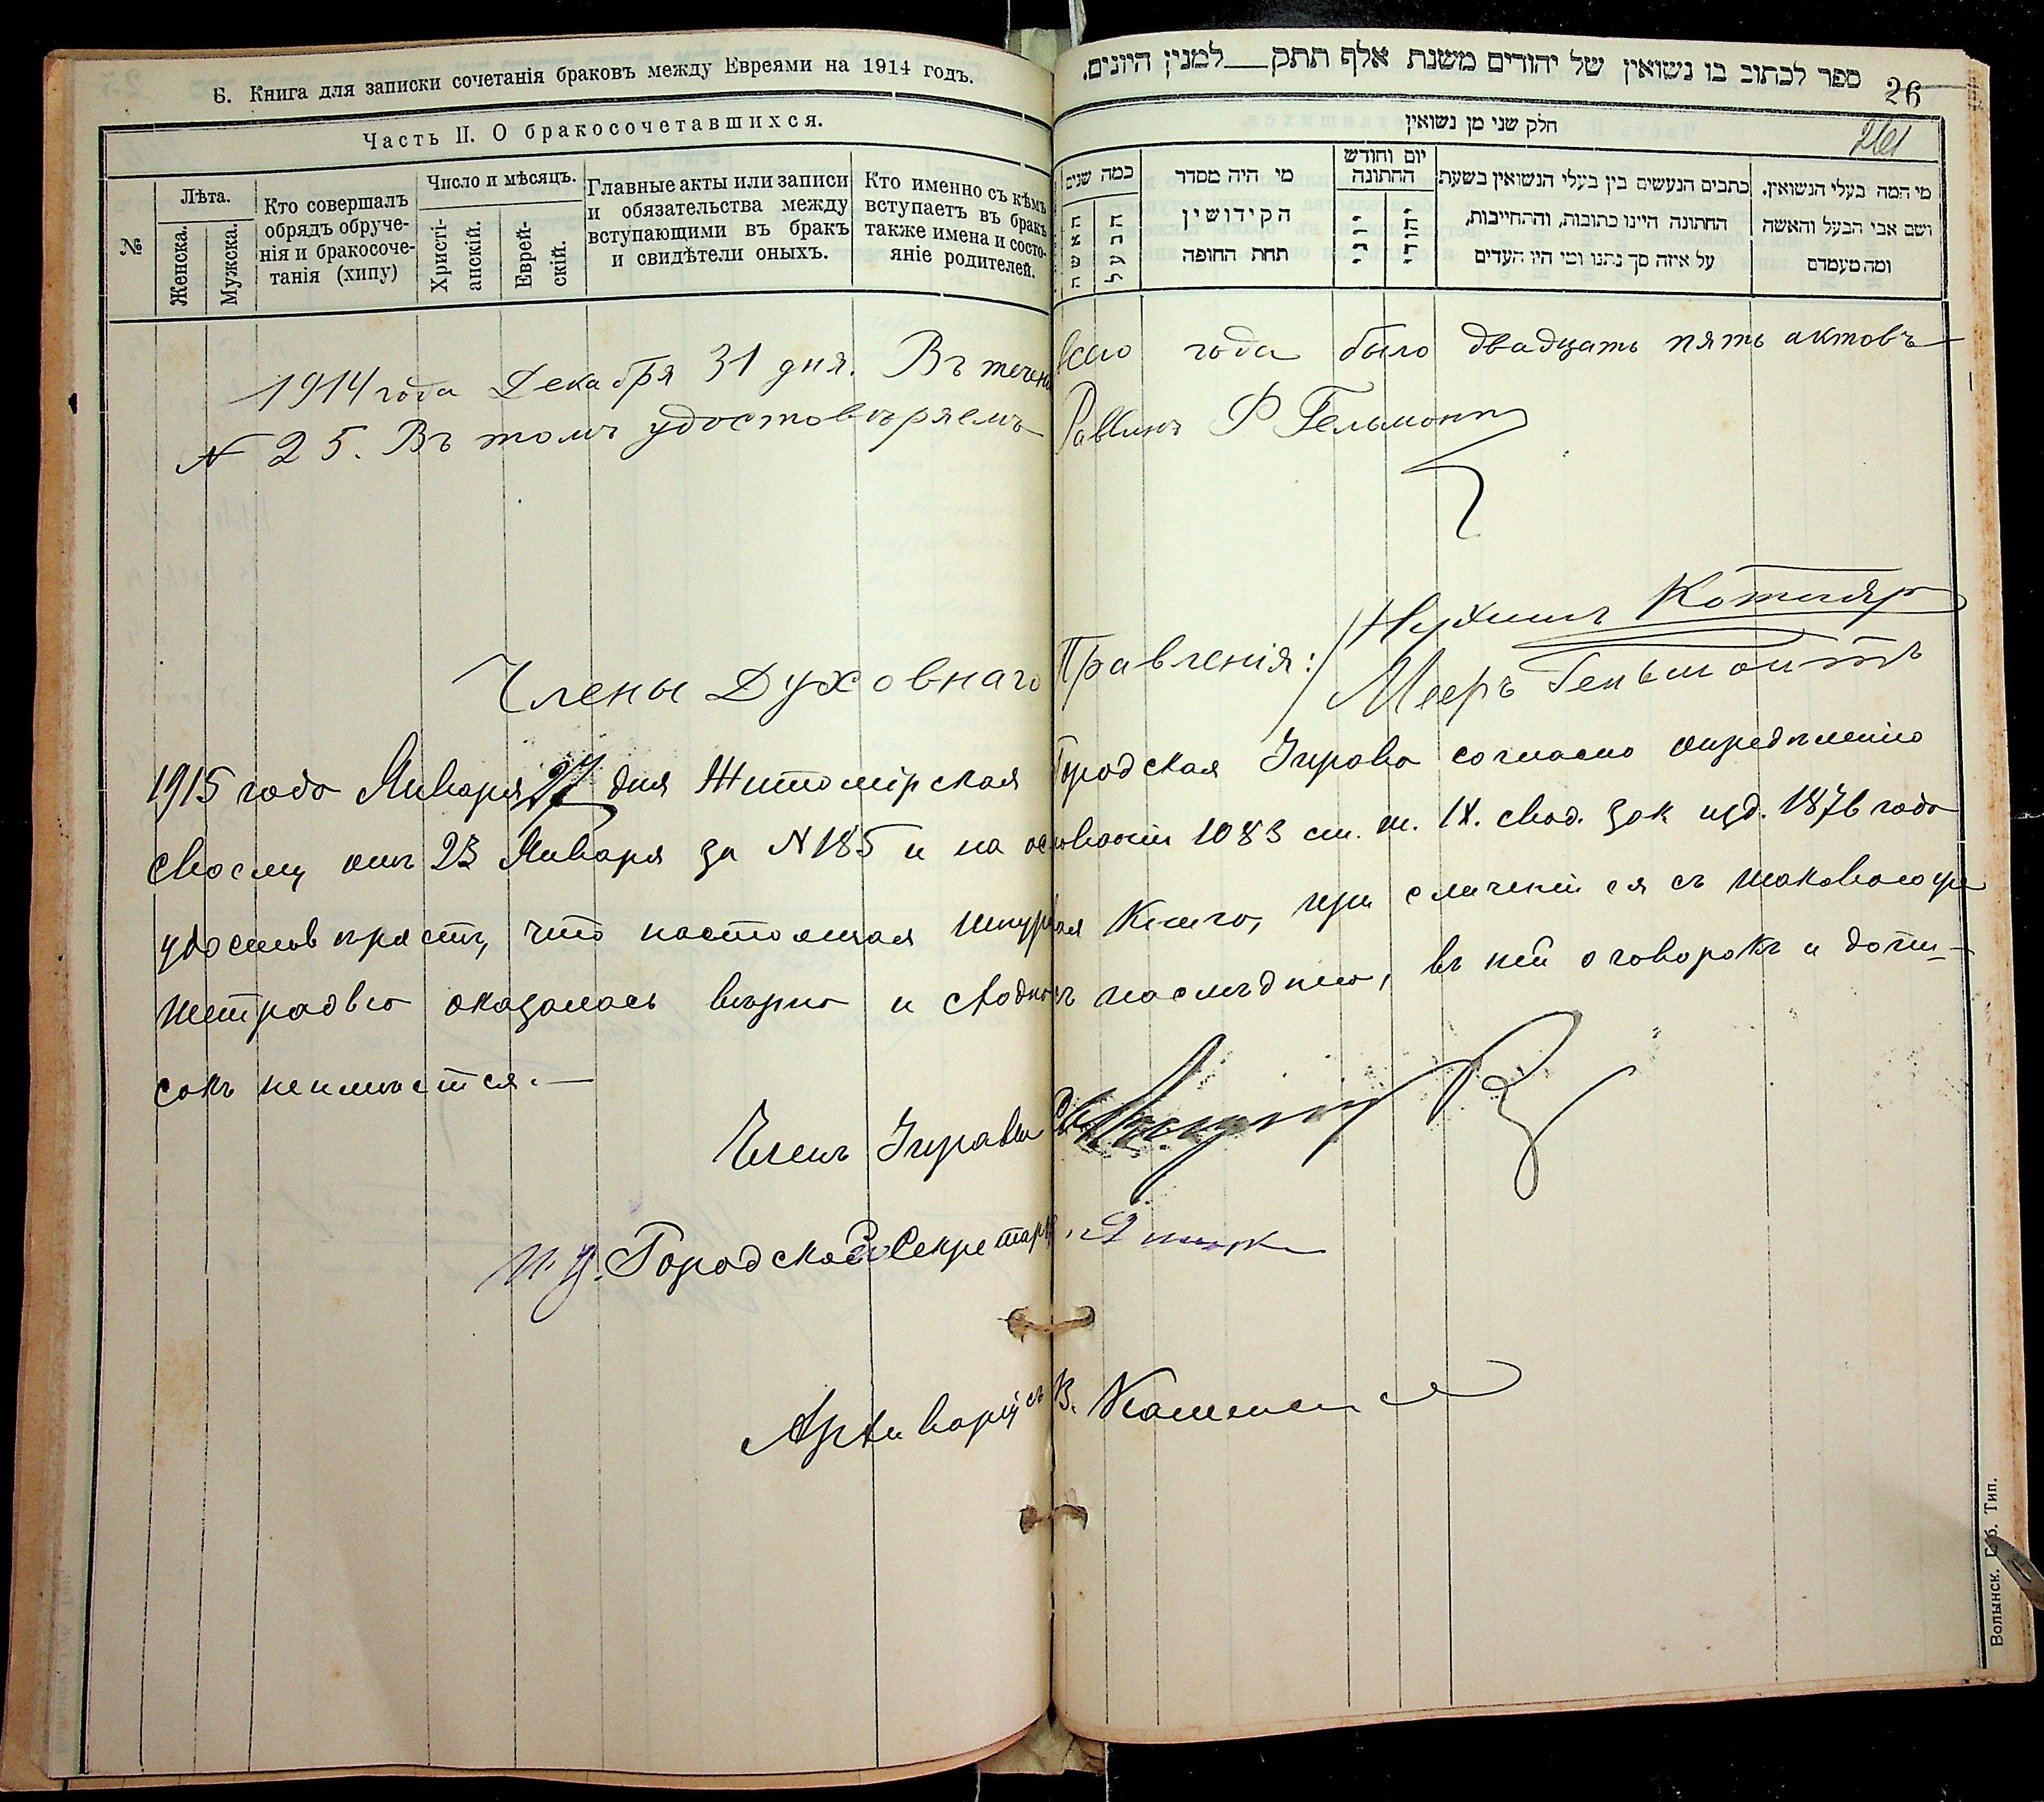 Б. Книга для записки сочетанія браковъ между Евреями на 1914 годъ.
ספר לכתוב בו נשואין של יהודים משנת אלף תתק__למנין היונים.
26
261
Часть II. О бракосочетавшихся.
חלק שני מן נשואין
№
Лѣта.
Женска.
Мужска.
Кто совершалъ
обрядъ обруче-
нія и бракосоче-
танія (хипу)
Число и мѣсяцъ.
Христі-
анскій.
Еврей-
скій.
Главные акты или записи
и обязательства между
вступающими въ бракъ
и свидѣтели оныхъ.
Кто именно съ кѣмъ
вступаетъ въ бракъ
также имена и состо-
яніе родителей.
מי המה בעלי הנשואין.
ושם אבי הבעל והאשה
ומה מעמדם
כתבים הנעשים בין בעלי הנשואין בשעת
החתונה היינו כתובות, והתחייבות,
על איזה סך נתנו ומי היו העדים
יום וחודש
החתונה
יהודי
מי היה מסדר
הקידושין
תחת החופה
כמה שנים
הבעל
האשה
1914 года Декабря 31 дня. Въ течен всего года было двадцать пять актовъ
N 25. Въ томъ удостовѣряемъ Раввинъ Ф Гельмонтъ
Члены Духовнаго Правленія: Нухимъ Котляр
Мееръ Гельмонтъ
1915 года Января 27 дня Житомірская Городская Управа согласно опредѣленію
своему отъ 23 Января за N 185 и на основаніи 1083 ст. т. IX. свод. зак изд. 1876 года
удостовѣряетъ, что настоящая шнуровая Книга, при сличеніи ея съ таковою же
тетрадью оказалась вѣрно и сходно съ послѣднею, въ ней оговорокъ и допи-
сокъ неимѣется.—
Членъ Управы
И. д. Городского Секретаря
Архиваріусъ В.
Волынск. Губ. Тип.